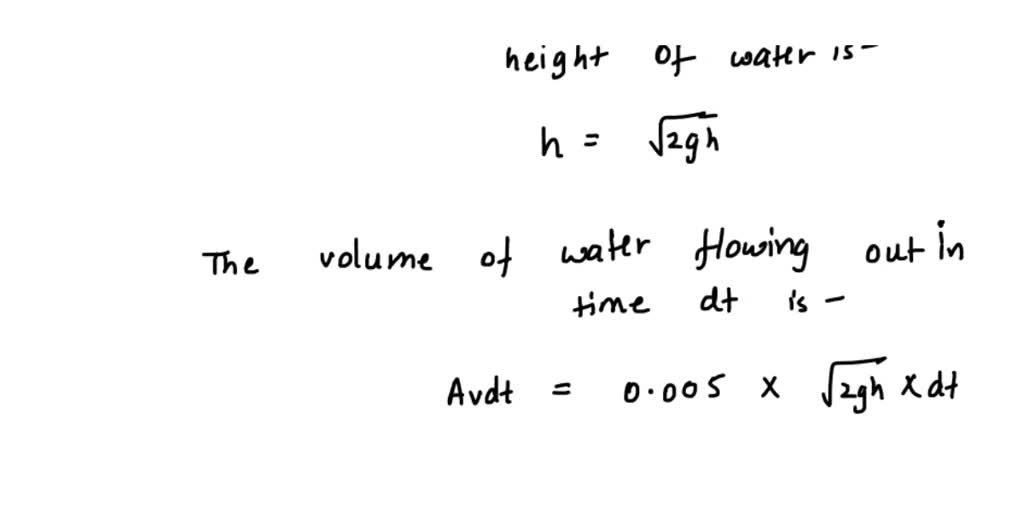 height of water is-
h = √2gh
The volume of water flowing out in
time dt is -
Avdt = 0.005 × √2gh × dt